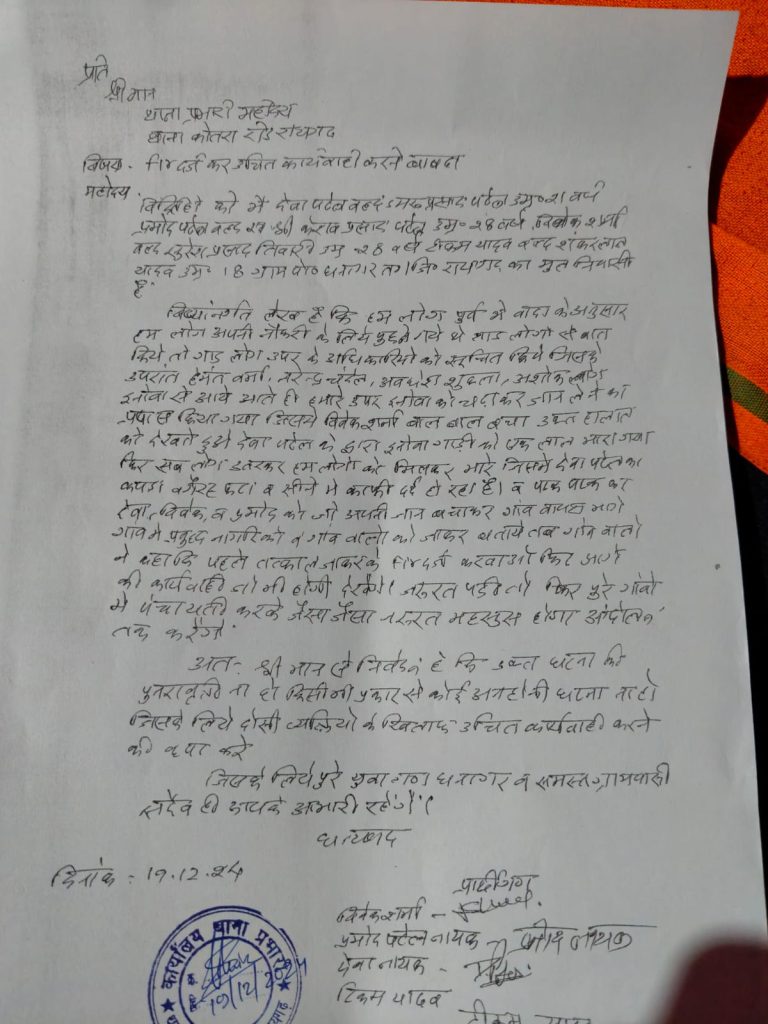 प्रति
श्रीमान
थाना प्रभारी महोदय
थाना कोतरा रोड रायगढ़
विषय - FIR दर्ज कर उचित कार्यवाही करने बाबत।
महोदय
विनती है कि मैं देवा पटेल वल्द प्रसाद पटेल उम्र 21 वर्ष
प्रमोद पटेल वल्द प्रसाद पटेल उम्र - 28 वर्ष, विवेक शर्मा
वल्द प्रसाद तिवारी उम्र - 28 वर्ष टिकम यादव वल्द शंकरलाल
यादव उम्र - 18 ग्राम पो० धनागर त० जि० रायगढ़ का मुल निवासी
हैं
विषयांतर्गत लेख है कि हम लोग पुर्व में वादा के अनुसार
हम लोग अपनी नौकरी के लिये पुछने गये थे गार्ड लोगो से बात
किये तो गार्ड लोग उपर के अधिकारियो को सूचित किये जिसके
उपरांत हेमंत वर्मा, नरेन्द्र चंदेल, अवधेश शुक्ला, अशोक
इनोवा से आये आते ही हमारे उपर इनोवा को चढ़ाकर जान लेने का
प्रयास किया गया जिसमे विवेक शर्मा बाल बाल बचा उक्त हालात
को देखते हुऐ देवा पटेल के द्वारा इनोवा गाड़ी को एक लात मारा गया
फिर सब लोग उतरकर हम लोगो को मिलकर मारे जिसमे देवा पटेल का
कपड़ा वगैरह फटा व सीने मे काफी दर्द हो रहा है। व
देवा, विवेक, व प्रमोद को जो अपनी जान बचाकर गांव वापस भागे
गांव मे प्रबुद्ध नागरिको व गांव वालो को जाकर बताये तब गांव वालो
ने कहा कि पहले तत्काल जाकर के FIR दर्ज करवाओ फिर आगे
की कार्यवाही जो भी होगी देखेंगे। जरुरत पड़ी तो फिर पुरे गांवो
मे पंचायती करके जैसा जैसा जरुरत महसुस होगा आंदोलन
तक करेंगे
अतः श्रीमान से निवेदन है कि उक्त घटना की
पुनरावृत्ति ना हो किसी भी प्रकार से कोई अनहोनी घटना ना हो
जिसके लिये दोसी व्यक्तियो के खिलाफ उचित कार्यवाही करने
की कृपा करे
जिसके लिये पुरे युवा गण धनागर व समस्त ग्रामवासी
सदैव ही आपके आभारी रहेंगे।
धन्यवाद
दिनांक - 19.12.24
प्रार्थीगण
विवेक शर्मा -
प्रमोद पटेल नायक -
देवा नायक -
टिकम यादव
कार्यालय थाना प्रभारी
19/12/24